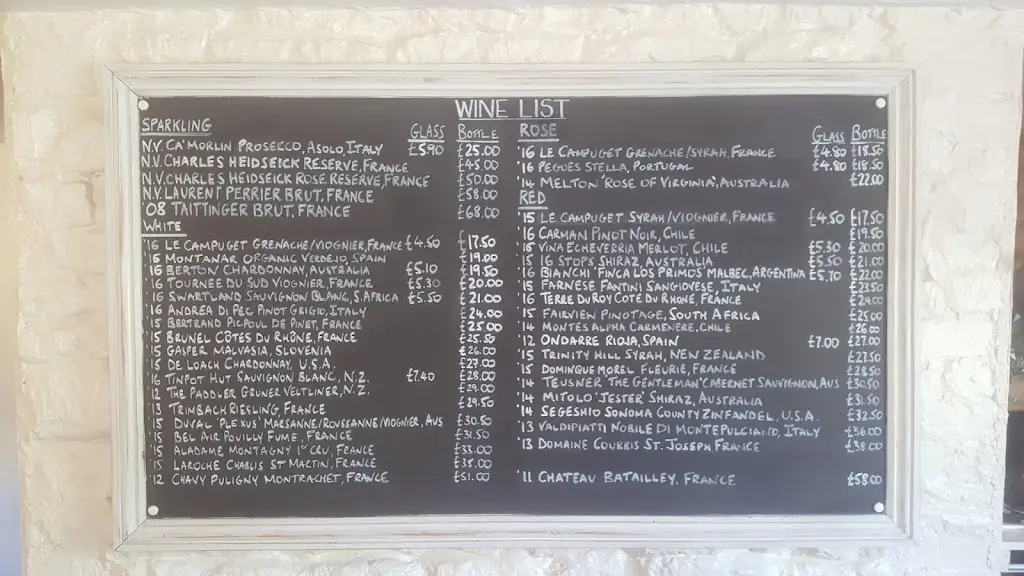 WINE LIST
SPARKLING GLASS BOTTLE
N.V. CA'MORLIN PROSECCO, ASOLO, ITALY £5.90 £25.00
N.V. CHARLES HEIDSEICK RESERVE, FRANCE £45.00
N.V. CHARLES HEIDSEICK ROSE RESERVE, FRANCE £50.00
N.V. LAURENT PERRIER BRUT, FRANCE £58.00
08 TAITTINGER BRUT, FRANCE £68.00
WHITE
'16 LE CAMPUGET GRENACHE/VIOGNIER, FRANCE £4.50 £17.50
16 MONTANAR ORGANIC VERDEJO, SPAIN £19.00
16 BERTON CHARDONNAY, AUSTRALIA £5.10 £19.50
16 TOURNÉE DU SUD VIOGNIER, FRANCE £5.30 £20.00
16 SWARTLAND SAUVIGNON BLANC, S.AFRICA £5.50 £21.00
16 ANDREA DI PEC PINOT GRIGIO, ITALY £24.00
15 BERTRAND PICPOUL DE PINET, FRANCE £25.00
15 BRUNEL CÔTES DU RHÔNE, FRANCE £25.50
15 GASPER MALVASIA, SLOVENIA £26.00
15 DE LOACH CHARDONNAY, U.S.A. £27.00
16 TINPOT HUT SAUVIGNON BLANC, N.Z. £7.40 £28.00
12 THE PADDLER GRUNER VELTLINER, N.Z. £29.00
13 TRIMBACH RIESLING FRANCE £29.50
15 DUVAL 'PLEXUS' MARSANNE/ROUSSANNE/VIOGNIER, AUS £30.50
15 BEL AIR POUILLY FUME, FRANCE £31.50
15 ALADAME MONTAGNY 1er CRU, FRANCE £33.00
15 LAROCHE CHABLIS ST MARTIN, FRANCE £35.00
'12 CHAVY PULIGNY MONTRACHET, FRANCE £51.00
ROSE GLASS BOTTLE
'16 LE CAMPUGET GRENACHE/SYRAH, FRANCE £4.80 £18.50
'16 PEGUES STELLA, PORTUGAL £4.80 £18.50
'14 MELTON 'ROSE OF VIRGINIA', AUSTRALIA £22.00
RED
'15 LE CAMPUGET SYRAH/VIOGNIER, FRANCE £4.50 £17.50
'16 CARMAN PINOT NOIR, CHILE £19.50
'15 VINA ECHEVERRIA MERLOT, CHILE £5.30 £20.00
'15 16 STOPS SHIRAZ, AUSTRALIA £5.50 £21.00
'16 BIANCHI 'FINCA LOS PRIMOS' MALBEC, ARGENTINA £5.70 £22.00
'15 FARNESE FANTINI SANGIOVESE, ITALY £23.50
'16 TERRE DU ROY CÔTE DU RHONE, FRANCE £24.00
'15 FAIRVIEW PINOTAGE, SOUTH AFRICA £25.00
'14 MONTES ALPHA CARMENERE, CHILE £26.00
'12 ONDARRE RIOJA, SPAIN £7.00 £27.00
'15 TRINITY HILL SYRAH, NEW ZEALAND £27.50
'15 DOMINIQUE MOREL FLEURIE, FRANCE £28.50
'14 TEUSNER 'THE GENTLEMAN' CABERNET SAUVIGNON, AUS £30.50
'14 MITOLO 'JESTER' SHIRAZ, AUSTRALIA £31.50
'14 SEGESHIO SONOMA COUNTY ZINFANDEL, U.S.A £32.50
'13 VALDIPIATTI NOBILE DI MONTEPULCIANO, ITALY £36.00
'13 DOMAINE COURBIS ST. JOSEPH FRANCE £38.00
'11 CHATEAU BATAILLEY, FRANCE £58.00